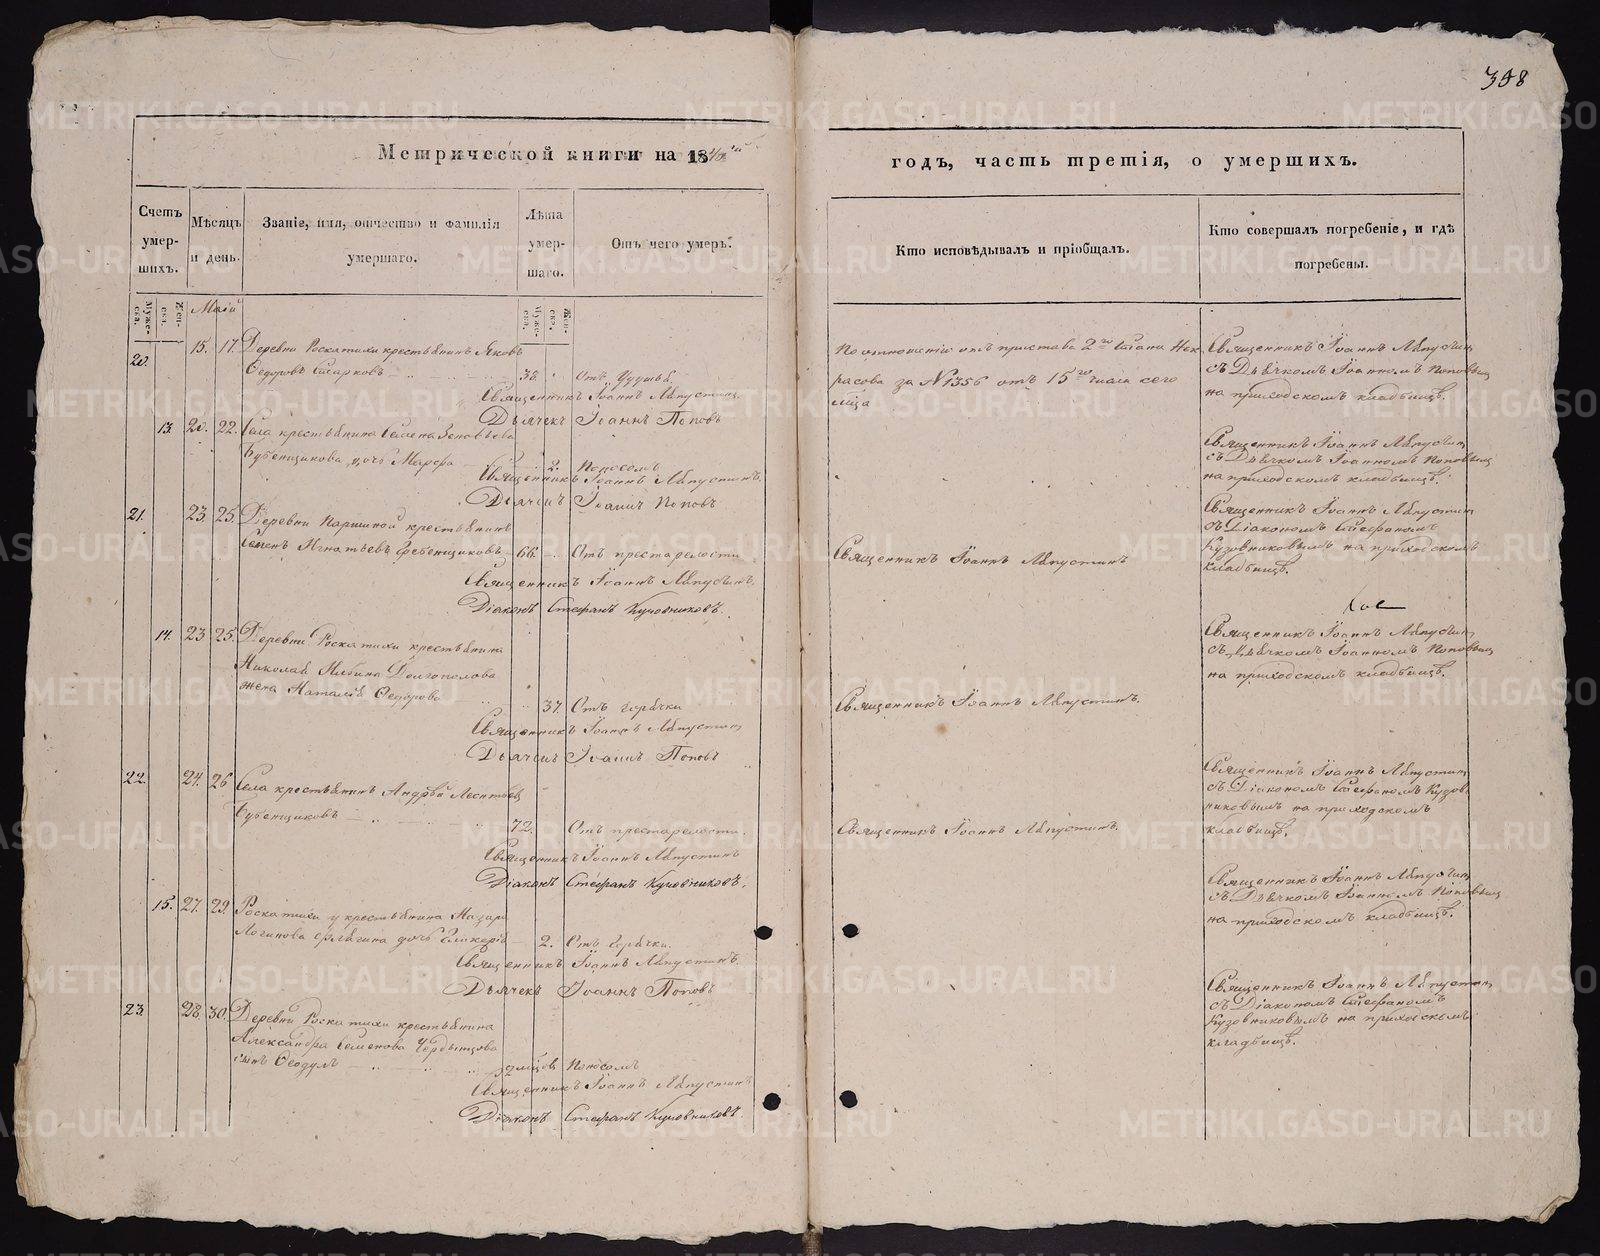 398
Метрической книги на 1840й годъ, часть третія, о умершихъ.
Счетъ умер-шихъ.
Мѣсяцъ и день.
Званіе, имя, отчество и фамилія умершаго.
Лѣта умер-шаго.
Отъ чего умеръ.
Кто исповѣдывалъ и пріобщалъ.
Кто совершалъ погребеніе, и гдѣ погребены.
Муже-ска.
Жен-ска.
Маій
Муже-ска.
Жен-ска.
20. 15. 17. Деревни Роскатихи крестьянинъ Яковъ
Ѳедоровъ Старковъ 38. Отъ удушья
Священникъ Іоаннъ
Дьячекъ Іоаннъ Поповъ
По отношенію отъ пристава 2го Стана Нек
расова за №1356 отъ 15го числа сего
мѣца
Священникъ Іоаннъ
съ Дьячкомъ Іоанномъ Поповымъ
на приходскомъ кладбищѣ.
13. 20. 22. Села крестьянина
Бубенщикова дочь Марфа 2. Поносомъ
Священникъ Іоаннъ
Дьячекъ Іоаннъ Поповъ
Священникъ Іоаннъ
съ Дьячкомъ Іоанномъ Поповымъ
на приходскомъ кладбищѣ.
21. 23. 25. Деревни крестьянинъ
Семенъ Игнатьевъ 66. Отъ престарелости
Священникъ Іоаннъ
Діаконъ Стефанъ Кузовниковъ.
Священникъ Іоаннъ
Священникъ Іоаннъ
съ Діакономъ Стефаномъ
Кузовниковымъ на приходскомъ
кладбищѣ.
14. 23 25. Деревни Роскатихи крестьянина
Николая Долгополова
жена Наталія Ѳедорова 37. Отъ горячки
Священникъ Іоаннъ
Дьячекъ Іоаннъ Поповъ
Священникъ Іоаннъ
Священникъ Іоаннъ
съ Дьячкомъ Іоанномъ Поповымъ
на приходскомъ кладбищѣ.
22. 24. 26 Села крестьянинъ Андрей Леонтьевъ
Бубенщиковъ 72. Отъ престарелости.
Священникъ Іоаннъ
Діаконъ Стефанъ Кузовниковъ.
Священникъ Іоаннъ
Священникъ Іоаннъ
съ Діакономъ Стефаномъ Кузов
никовымъ на приходскомъ
кладбищѣ.
15. 27. 29. Роскатихи у крестьянина Назара
Логинова дочь Гликерія 2. Отъ горячки.
Священникъ Іоаннъ
Дьячекъ Іоаннъ Поповъ
Священникъ Іоаннъ
съ Дьячкомъ Іоанномъ Поповымъ
на приходскомъ кладбищѣ.
23. 28. 30. Деревни Роскатихи крестьянина
Александра Семенова
сынъ Ѳеодулъ Поносомъ
Священникъ Іоаннъ
Діаконъ Стефанъ Кузовниковъ.
Священникъ Іоаннъ
съ Діакономъ Стефаномъ
Кузовниковымъ на приходскомъ
кладбищѣ.
METRIKI.GASO-URAL.RU